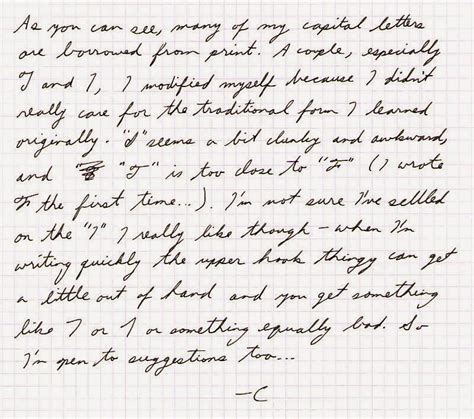 As you can see, many of my capital letters
are borrowed from print. A couple, especially
T and I, I modified myself because I didn't
really care for the traditional form I learned
originally. "I" seems a bit clunky and awkward,
and "T" is too close to "F" (I wrote
F the first time...). I'm not sure I've settled
on the "I" I really like though – when I'm
writing quickly the upper hook thingy can get
a little out of hand and you get something
like 7 or 1 or something equally bad. So
I'm open to suggestions too...
-C